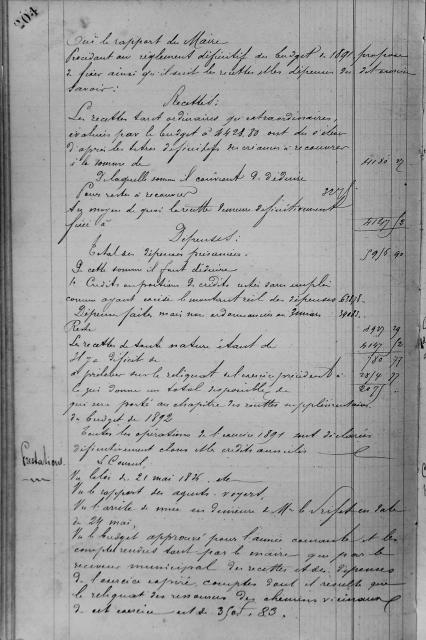 204
Ouï le rapport du Maire
Procédant au règlement définitif du budget de 1891, propose
de fixer ainsi qu'il suit les recettes et les dépenses du dit exercice
Savoir:
Recettes:
Les recettes tant ordinaires qu'extraordinaires,
évaluées par le budget à 4428.80 ont dû s'élever
d'après les titres définitifs des créances à recouvrer
à la somme de
De laquelle somme il convient de déduire
Pour reste à recouvrer
Au moyen de quoi la recette demeure définitivement
fixée à
Dépenses:
Total des dépenses présumées. 5916 90
De cette somme il faut déduire
1° Crédits ou portions de crédits restés sans emploi
comme ayant excédé le montant réel des dépenses
Dépenses faites mais non ordonnancées au 31 mars
Reste
Les recettes de toute nature étant de
Il y a déficit de
à prélever sur le reliquat de l'exercice précédent
ce qui donne un total disponible de
qui sera porté au chapitre des recettes supplémentaires
du budget de 1892
Toutes les opérations de l'exercice 1891 sont déclarées
définitivement closes et les crédits annulés
Prestations
Le Conseil,
Vu la loi du 21 mai 1836 etc
Vu le rapport des agents voyers,
Vu l'arrêté de mise en demeure de Mr le Préfet en date
du 24 mai,
Vu le budget approuvé pour l'année courante et les
comptes rendus tant par le maire que par le
receveur municipal des recettes et des dépenses
de l'exercice expiré, comptes dont il résulte que
le reliquat des ressources des chemins vicinaux
de cet exercice est de